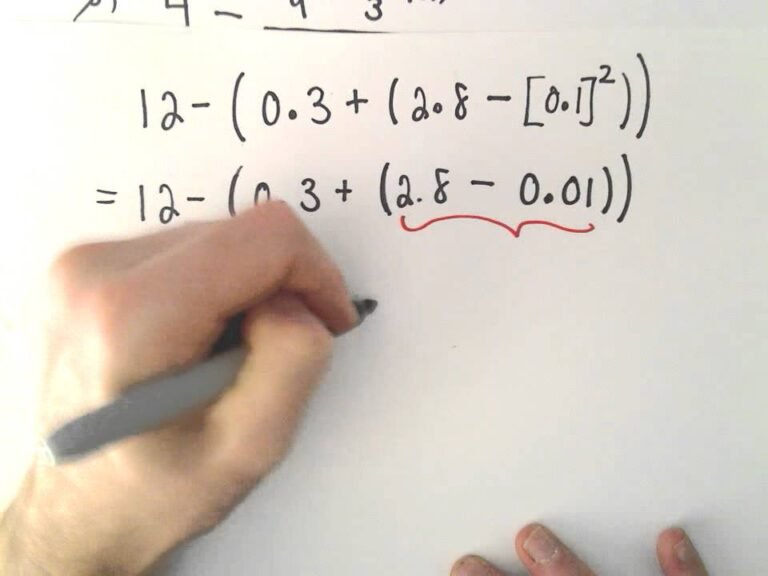 4 -
12 - (0.3 + (2.8 - [0.1]²))
= 12 - (0.3 + (2.8 - 0.01))